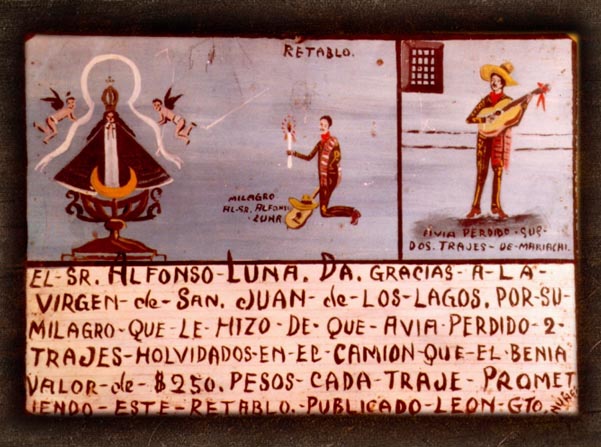 RETABLO.
MILAGRO
AL-SR. ALFONSO
LUNA
AVIA PERDIDO-SUS-
DOS. TRAJES-DE-MARIACHI.
EL-SR. ALFONSO-LUNA. DA. GRACIAS-A-LA-
VIRGEN-de-SAN. JUAN-de-LOS-LAGOS. POR-SU-
MILAGRO-QUE-LE-HIZO-DE-QUE-AVIA-PERDIDO-2-
TRAJES-HOLVIDADOS-EN-EL-CAMION-QUE-EL-BENIA
VALOR-de-$250. PESOS-CADA-TRAJE-PROMET
IENDO-ESTE-RETABLO.-PUBLICADO-LEON-GTO.